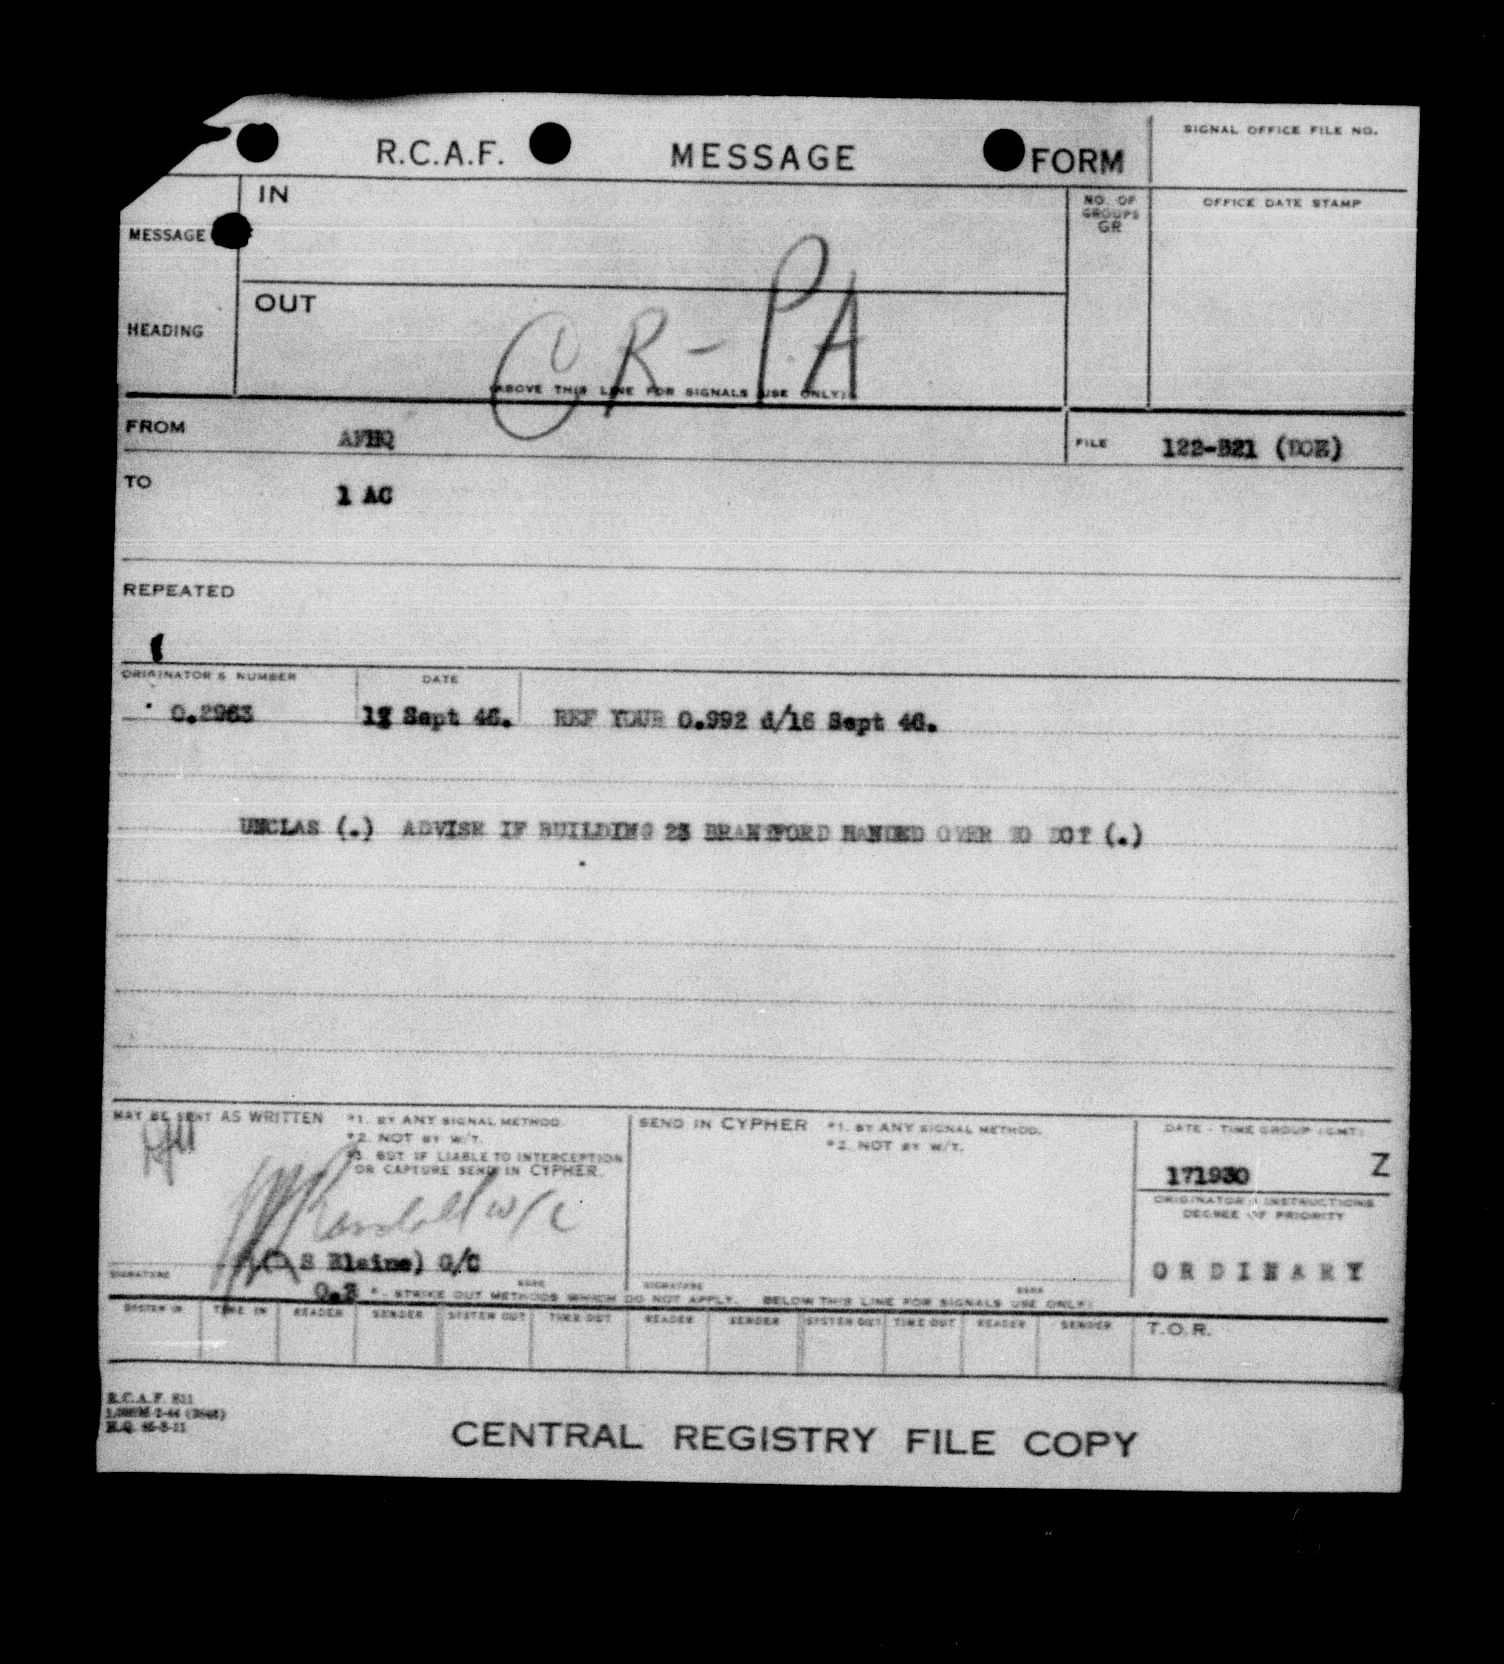 R.C.A.F. MESSAGE FORM
SIGNAL OFFICE FILE NO.
IN
NO. OF GROUPS GR
OFFICE DATE STAMP
MESSAGE
OUT
HEADING
CR - PA
(ABOVE THIS LINE FOR SIGNALS USE ONLY)
FROM AFHQ
FILE 122-B21 (DOE)
TO 1 AC
REPEATED
ORIGINATOR'S NUMBER DATE
0.2963 Sept 46. REF YOUR 0.992 d/16 Sept 46.
UNCLAS (.) ADVISE IF BUILDING 23 BRANTFORD HANDED OVER TO DOT (.)
MAY BE SENT AS WRITTEN
*1. BY ANY SIGNAL METHOD.
*2. NOT BY W/T.
*3. BUT IF LIABLE TO INTERCEPTION
OR CAPTURE SEND IN CYPHER.
SEND IN CYPHER
*1. BY ANY SIGNAL METHOD.
*2. NOT BY W/T.
DATE - TIME GROUP (GMT)
171930 Z
ORIGINATOR'S INSTRUCTIONS
DEGREE OF PRIORITY
Randall W/C
S Blaine) G/C
ORDINARY
SIGNATURE RANK SIGNATURE RANK
0.3 *- STRIKE OUT METHODS WHICH DO NOT APPLY. BELOW THIS LINE FOR SIGNALS USE ONLY)
SYSTEM IN TIME IN READER SENDER SYSTEM OUT TIME OUT READER SENDER SYSTEM OUT TIME OUT READER SENDER T.O.R.
R.C.A.F. 811
H.Q.
CENTRAL REGISTRY FILE COPY